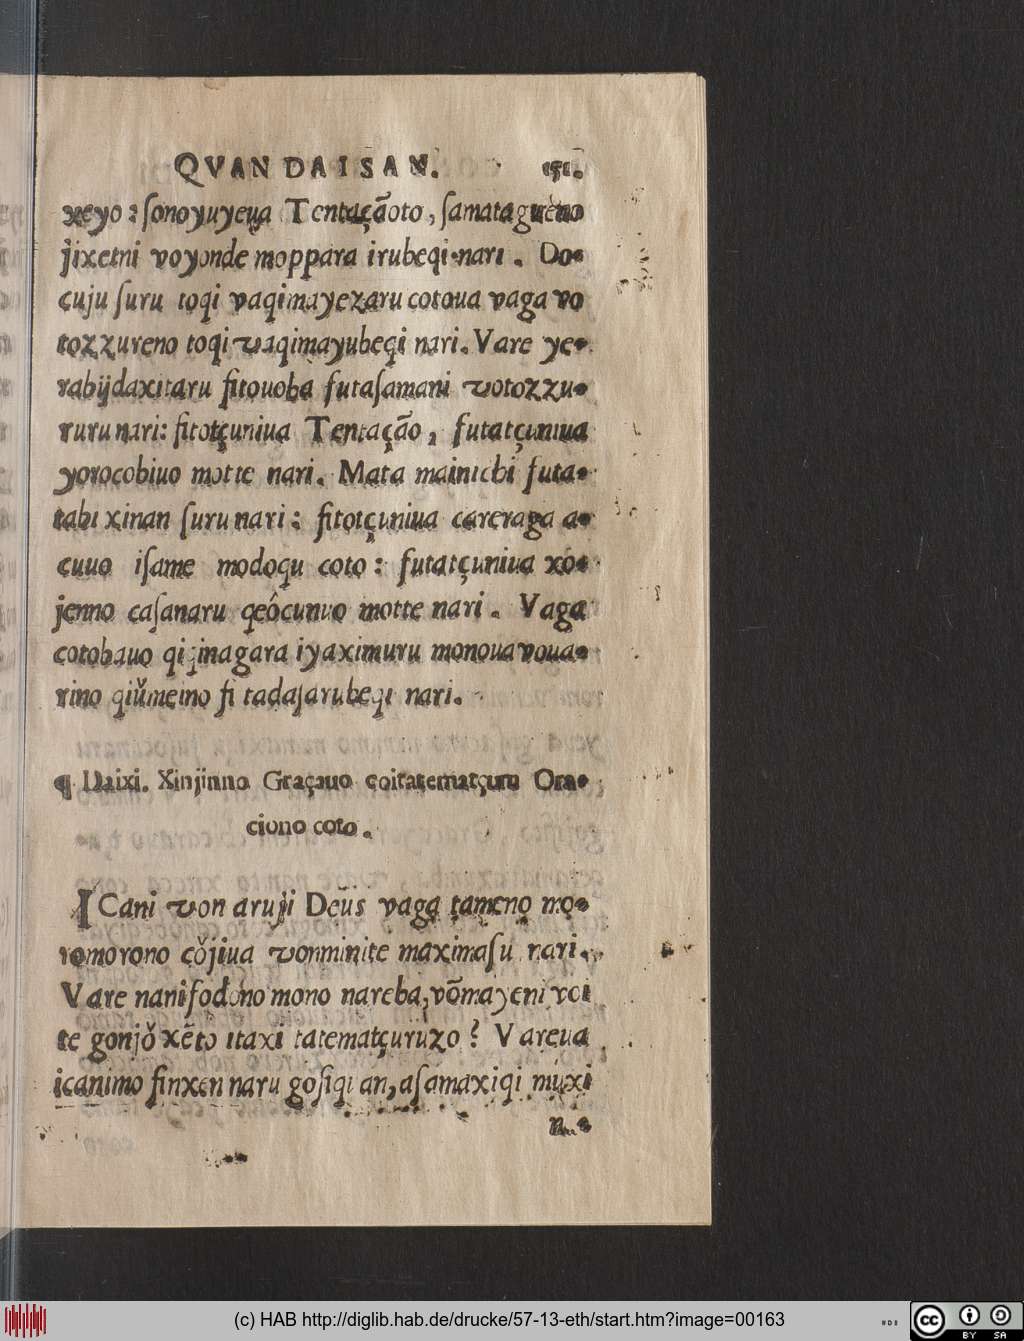 QVAN DAI SAN. 151.
xeyo: ſonoyuyeua Tentaçãoto, ſamatagueno
jixetni voyonde moppara irubeqi nari. Do-
cuju ſuru toqi vaqimayezaru cotoua vaga vo
tozzureno toqi vaqimayubeqi nari. Vare ye-
rabijdaxitaru fitouoba futaſamani votozzu-
ruru nari: fitotçuniua Tentação, futatçuniua
yorocobiuo motte nari. Mata mainichi futa-
tabi xinan ſuru nari: fitotçuniua careraga a-
cuuo iſame modoqu coto: futatçuniua xô-
jenno caſanaru qeôcunuo motte nari. Vaga
cotobauo qiqinagara iyaximuru monoua voua-
rino qiǔmeino fi tadaſarubeqi nari.
¶ Daixi. Xinjinno Graçauo coitatematçuru Ora-
ciono coto.
ICani von aruji Deus vaga tameno mo-
romorono cǒjiua vonminite maximaſu nari.
Vare nanifodono mono nareba, võmayeni rei
te gonjǒ xẽto itaxi tatematçuruzo? Vareua
icanimo finxen naru goſiqi an, aſamaxiqi muxi
(c) HAB http://diglib.hab.de/drucke/57-13-eth/start.htm?image=00163
CC BY SA